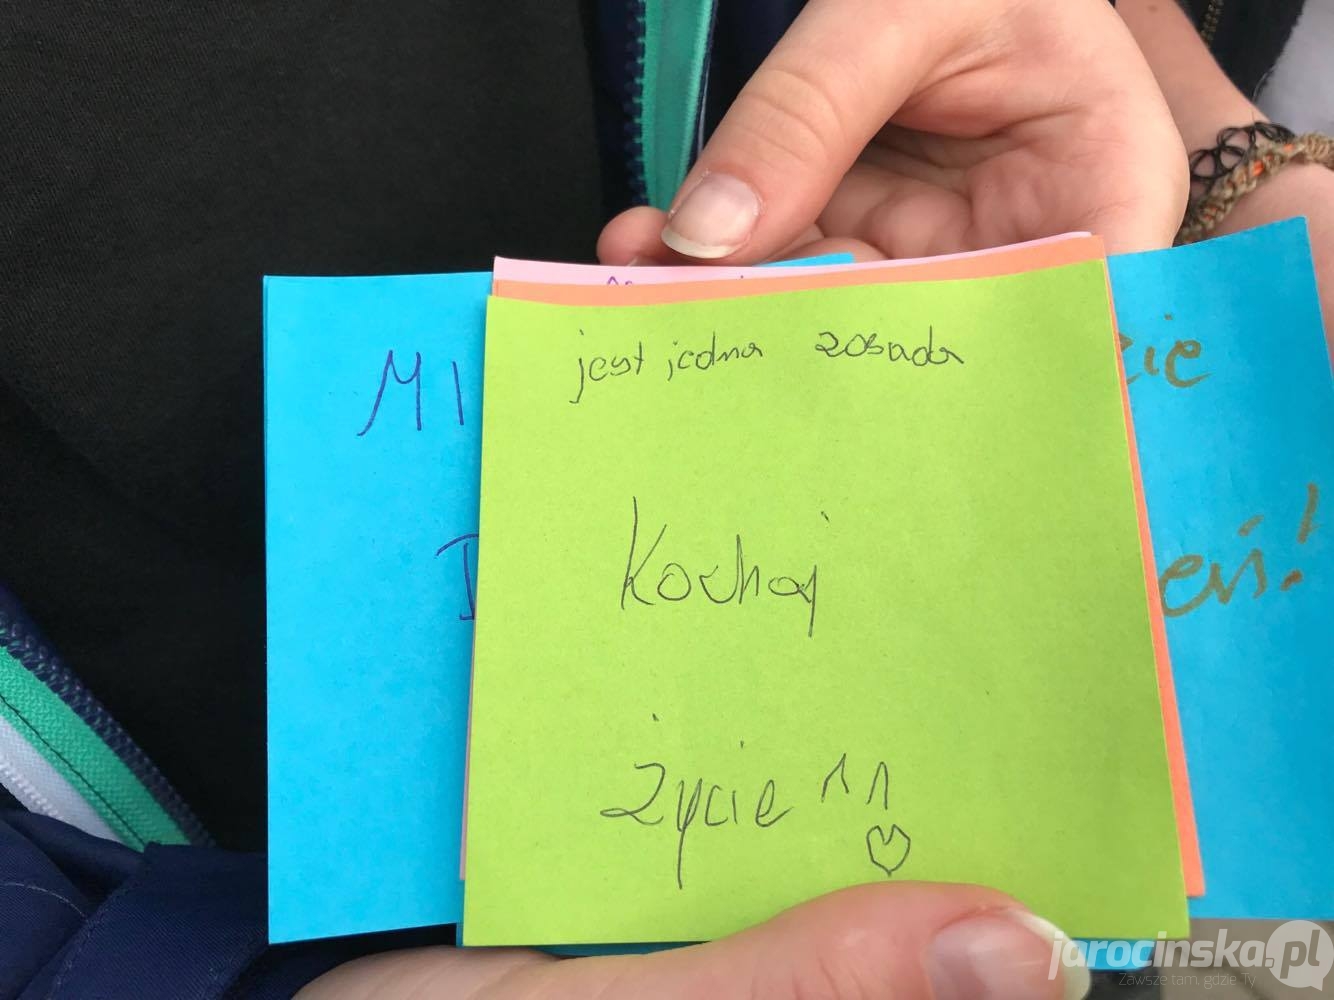 jest jedna zasada
Kochaj
życie ^^
MI
zie
eń!
jarocinska.pl
Zawsze tam, gdzie Ty